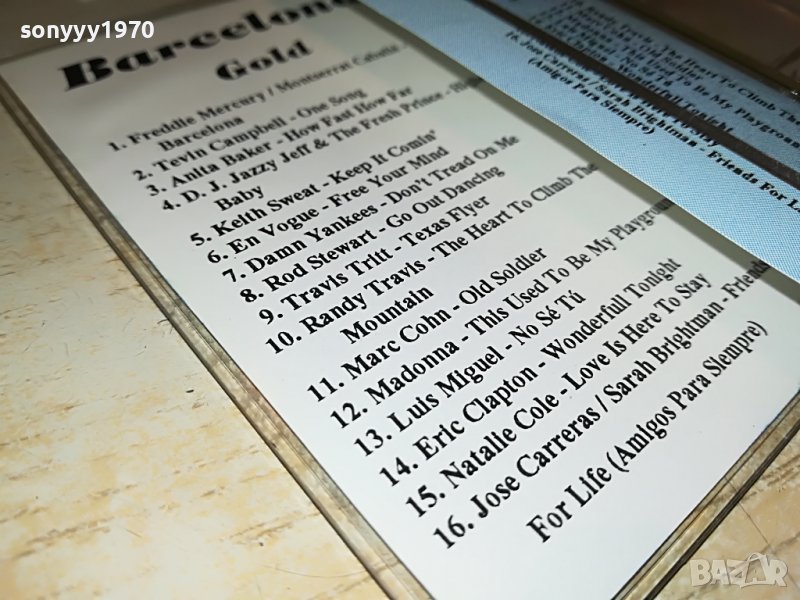 sonyyy1970
Barcelona
Gold
1. Freddie Mercury / Montserrat Caballé -
Barcelona
2. Tevin Campbell - One Song
3. Anita Baker - How Fast How Far
4. D. J. Jazzy Jeff & The Fresh Prince -
Baby
5. Keith Sweat - Keep It Comin'
6. En Vogue - Free Your Mind
7. Damn Yankees - Don't Tread On Me
8. Rod Stewart - Go Out Dancing
9. Travis Tritt - Texas Flyer
10. Randy Travis - The Heart To Climb The
Mountain
11. Marc Cohn - Old Soldier
12. Madonna - This Used To Be My Playground
13. Luis Miguel - No Sé Tú
14. Eric Clapton - Wonderfull Tonight
15. Natalie Cole - Love Is Here To Stay
16. Jose Carreras / Sarah Brightman - Friends
For Life (Amigos Para Siempre)
The Heart To Climb The
To Be My Playground
16. Jose Carreras / Sarah Brightman - Friends For Li
(Amigos Para Siempre)
BAZAR